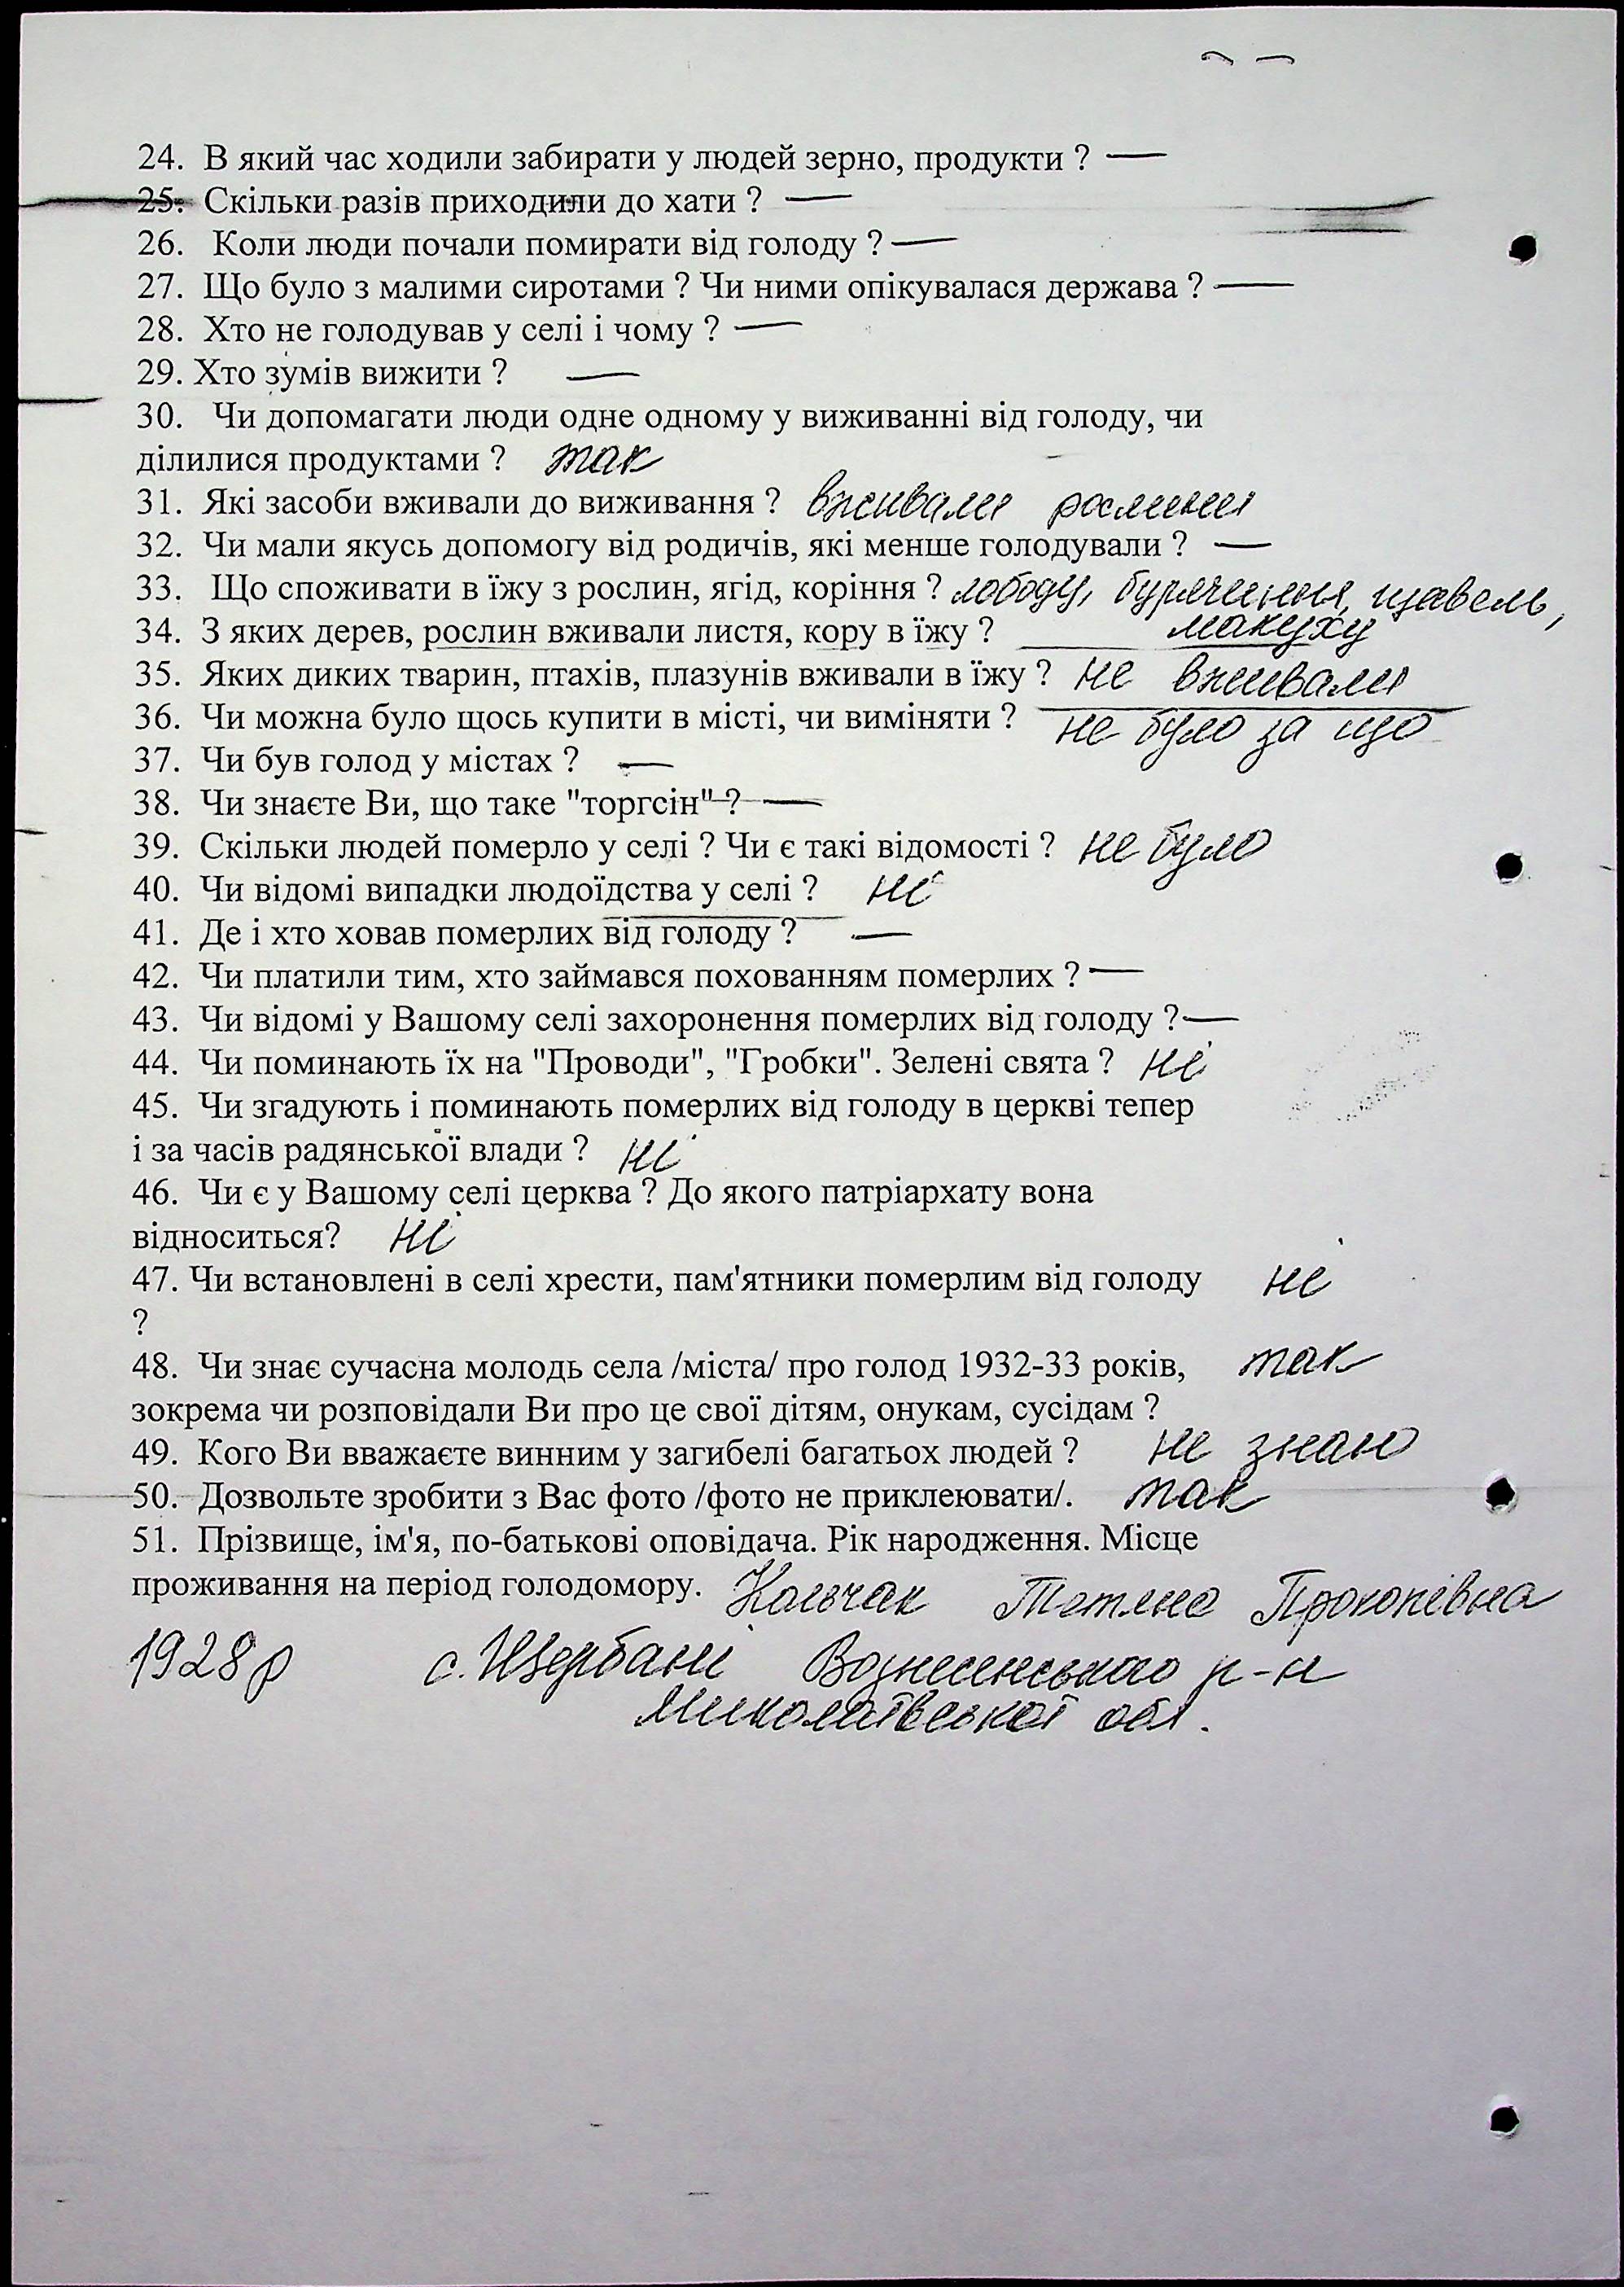 24. В який час ходили забирати у людей зерно, продукти ? —
25. Скільки разів приходили до хати ? —
26. Коли люди почали помирати від голоду ? —
27. Що було з малими сиротами ? Чи ними опікувалася держава ? —
28. Хто не голодував у селі і чому ? —
29. Хто зумів вижити ? —
30. Чи допомагати люди одне одному у виживанні від голоду, чи
ділилися продуктами ? так
31. Які засоби вживали до виживання ? вживали рослини
32. Чи мали якусь допомогу від родичів, які менше голодували ? —
33. Що споживати в їжу з рослин, ягід, коріння ? лободу, бурячиння, щавель,
макуху
34. З яких дерев, рослин вживали листя, кору в їжу ? —
35. Яких диких тварин, птахів, плазунів вживали в їжу ? не вживали
36. Чи можна було щось купити в місті, чи виміняти ? не було за що
37. Чи був голод у містах ? —
38. Чи знаєте Ви, що таке "торгсін" ? —
39. Скільки людей померло у селі ? Чи є такі відомості ? не було
40. Чи відомі випадки людоїдства у селі ? ні
41. Де і хто ховав померлих від голоду ? —
42. Чи платили тим, хто займався похованням померлих ? —
43. Чи відомі у Вашому селі захоронення померлих від голоду ? —
44. Чи поминають їх на "Проводи", "Гробки". Зелені свята ? ні
45. Чи згадують і поминають померлих від голоду в церкві тепер
і за часів радянської влади ? ні
46. Чи є у Вашому селі церква ? До якого патріархату вона
відноситься? ні
47. Чи встановлені в селі хрести, пам'ятники померлим від голоду ні
?
48. Чи знає сучасна молодь села /міста/ про голод 1932-33 років, так
зокрема чи розповідали Ви про це свої дітям, онукам, сусідам ?
49. Кого Ви вважаєте винним у загибелі багатьох людей ? не знаю
50. Дозвольте зробити з Вас фото /фото не приклеювати/. так
51. Прізвище, ім'я, по-батькові оповідача. Рік народження. Місце
проживання на період голодомору. Кольчак Тетяна Прокопівна
1928р с. Щербані Вознесенського р-н
Миколаївської обл.